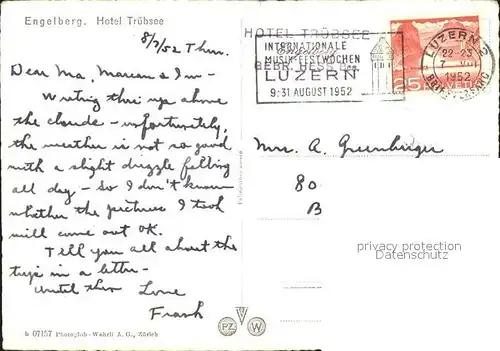 Engelberg. Hotel Trübsee
8/7/52 Thur.
Dear Ma, Marian & Irv-
Writing this up above
the clouds - unfortunately,
the weather is not so good
with a slight drizzle falling
all day - so I don't know
whether the pictures I took
will come out OK.
Tell you all about the
trip in a letter -
Until then Love
Frank
b 07157 Photoglob-Wehrli A. G., Zürich
HOTEL TRÜBSEE
GEBR. HESS
INTERNATIONALE
MUSIKFESTWOCHEN
LUZERN
9.-31 AUGUST 1952
LUZERN 2
22-23
7
1952
BRIEFVERSAND
25 HELVETIA
Mrs. A. Greenberger
80
B
privacy protection
Datenschutz
PZ W